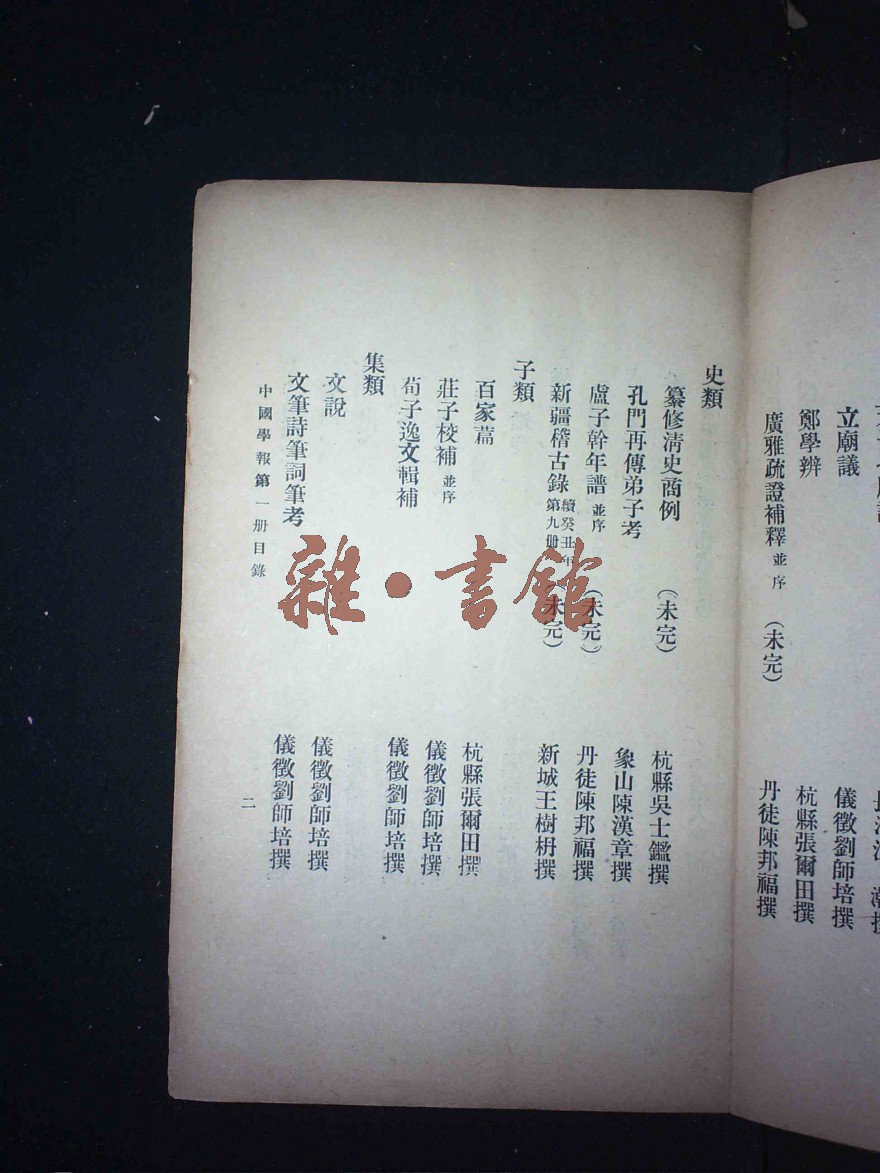 立廟議
儀徵劉師培撰
鄭學辨
杭縣張爾田撰
廣雅疏證補釋 並序 (未完)
丹徒陳邦福撰
史類
纂修清史商例 (未完)
杭縣吳士鑑撰
孔門再傳弟子考
象山陳漢章撰
盧子幹年譜 並序 (未完)
丹徒陳邦福撰
新疆稽古錄 續癸丑年第九册 (未完)
新城王樹枏撰
子類
百家篇
杭縣張爾田撰
莊子校補 並序
儀徵劉師培撰
荀子逸文輯補
儀徵劉師培撰
集類
文說
儀徵劉師培撰
文筆詩筆詞筆考
儀徵劉師培撰
中國學報第一册目錄
二
雜·書館